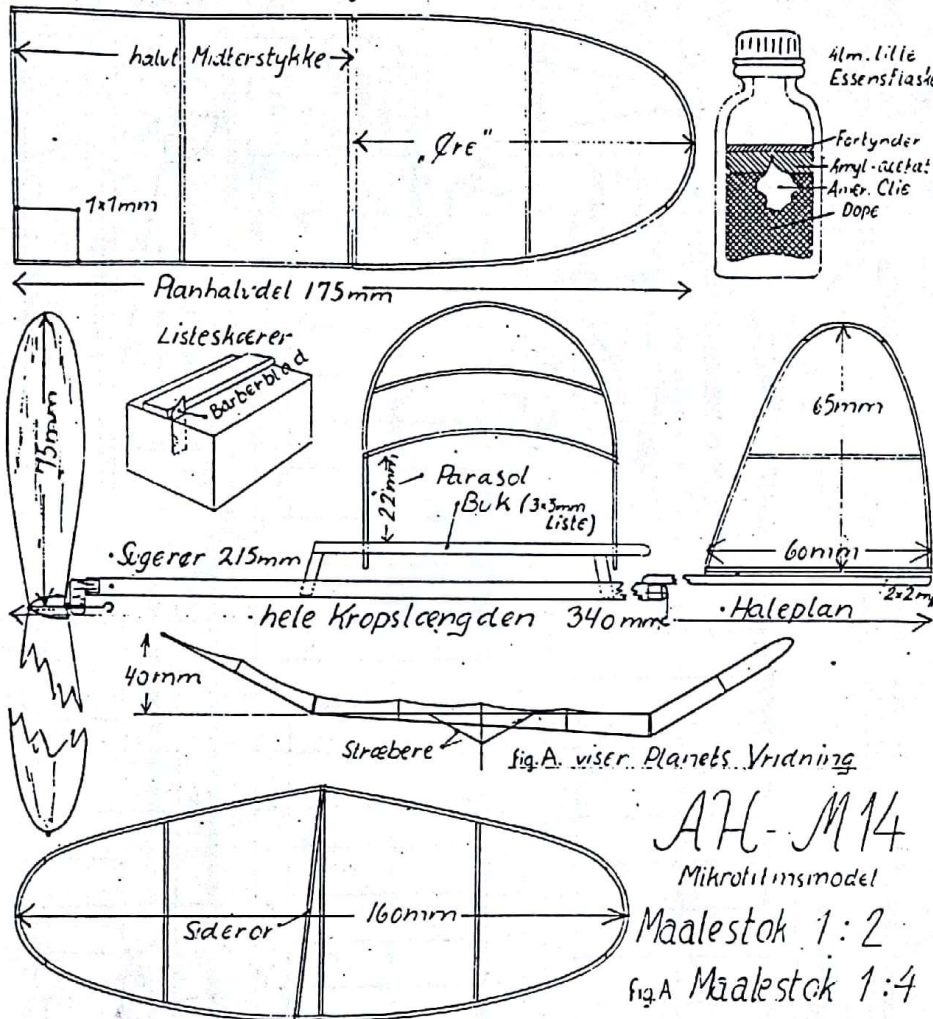 halvt Midterstykke
"Øre"
1x1mm
Planhalvdel 175mm
Alm. lille
Essensflaske
Fortynder
Amyl-acetat
Amer. Olie
Dope
75mm
Listeskærer
Barberblad
22mm
Parasol
Buk (3x3mm
Liste)
65mm
60mm
2x2mm
Haleplan
hele Kropslængden 340mm
40mm
Stræbere
fig.A. viser Planets Vridning
Sideror
160mm
AH-M14
Mikrofilmsmodel
Maalestok 1:2
fig.A Maalestok 1:4